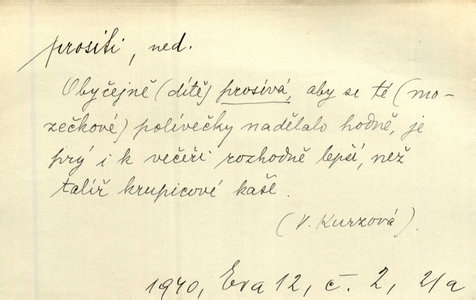 prositi, ned.
Obyčejně (dítě) prosívá, aby se té (mo-
zečkové) polívečky nadělalo hodně, je
prý i k večeři rozhodně lepší, než
talíř krupicové kaše.
(V. Kurzová).
1940, Eva 12, č. 2, 21a